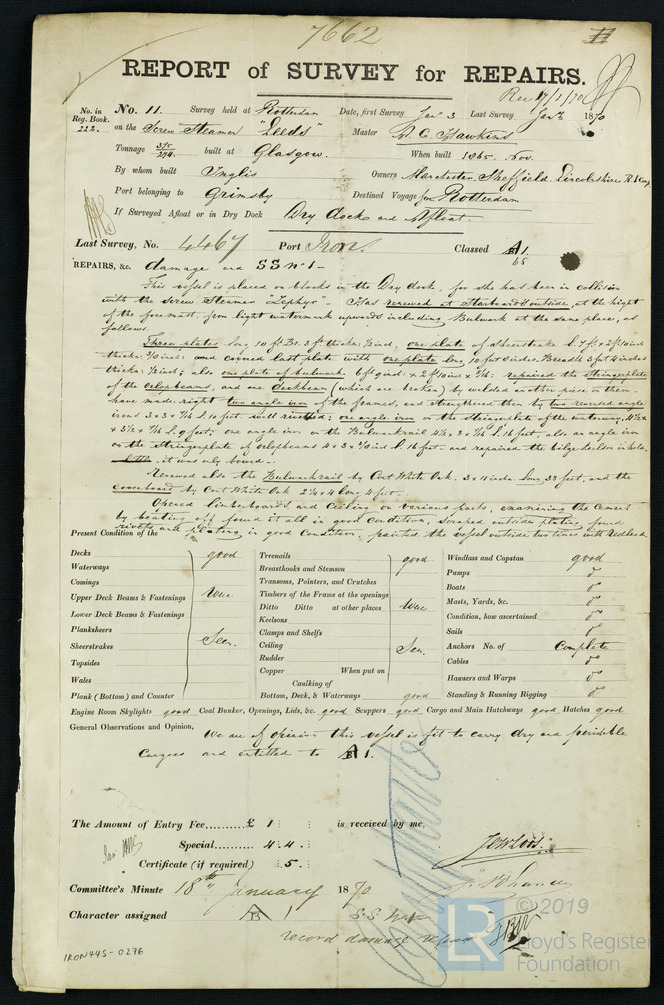 7662
REPORT of SURVEY for REPAIRS.
Rec 17/1/70
No. in Reg. Book. 222. No. 11. Survey held at Rotterdam Date, first Survey Jan 3 Last Survey 1870
on the Screw Steamer "Leeds" Master C Hawkins
Tonnage 375/274 built at Glasgow. When built 1865. Nov.
By whom built Inglis Owners Manchester, Sheffield, Lincolnshire
Port belonging to Grimsby Destined Voyage for Rotterdam
If Surveyed Afloat or in Dry Dock Dry dock and Afloat
Last Survey, No. 4467 Port Iron. Classed A 1. 65
REPAIRS, &c. damage and SS No 1
This vessel is placed on blocks in the Dry dock, for she has been in collision
with the Screw Steamer "Zephyr". Has renewed at Starboard outside, at the height
of the foremast, from light watermark upwards including Bulwark at the same place, as
follows.
Three plates long 10 ft Br. 3 ft thick: 1/2 ind, one plate of sheerstrake L 7 ft x 2 ft ind
thick: ind: and covered last plate with one plate long 10 feet 6 inches Breadth 3 feet 4 inches
thick: 1/2 ind; also one plate of bulwark 6 ft 9 ind: x 2 ft 10 ind x : repaired the stringerplate
of the orlopbeams, and one deckbeam (which are broken) by welded another piece on them
have made right two angle iron of the frames, and strengthened them by two reversed angle
irons 3 x 3 x L. 10 feet well rivetted; one angle iron on the stringerplate of the waterway,
x 3 1/2 x L. 9 feet; one angle iron on the Bulwarkrail 4 1/2 x 3 x L. 16 feet, also an angle iron
on the stringerplate of orlopbeams 4 x 3 x ind L. 16 feet. and repaired the bilgekeelson in hole.
it was only bowed.
Renewed also the Bulwarkrail by Cort White Oak. 3 x 11 inch. long 33 feet, and the
coverboard by Cort White Oak 2 1/4 x 4 long 4 feet.
Opened limberboards and Ceiling on various parts, examining the Cement
by beating off found it all in good condition, scraped outside plating found
rivets and plating in good condition, painted the vessel outside two times with Redlead.
Present Condition of the
Decks good
Waterways
Comings
Upper Deck Beams & Fastenings
Lower Deck Beams & Fastenings
Planksheers
Sheerstrakes Seen.
Topsides
Wales
Plank (Bottom) and Counter
Treenails good
Breasthooks and Stemson
Transoms, Pointers, and Crutches
Timbers of the Frame at the openings
Ditto Ditto at other places
Keelsons
Clamps and Shelfs
Ceiling Seen.
Rudder
Copper When put on
Caulking of
Bottom, Deck, & Waterways good
Windlass and Capstan good
Pumps do
Boats do
Masts, Yards, &c. do
Condition, how ascertained do
Sails do
Anchors No. of Complete
Cables do
Hawsers and Warps do
Standing & Running Rigging do
Engine Room Skylights good Coal Bunker, Openings, Lids, &c. good Scuppers good Cargo and Main Hatchways good Hatches good
General Observations and Opinion, We are of opinion this vessel is fit to carry dry and perishable
Cargoes and entitled to A 1.
The Amount of Entry Fee.......... £ 1 : : is received by me,
Special.......... 4 . 4 . :
Certificate (if required) : 5 . :
Committee's Minute 18th January 1870
Character assigned A 1
record damage repair
IRON445-0276
© 2019
LR
Lloyd's Register
Foundation